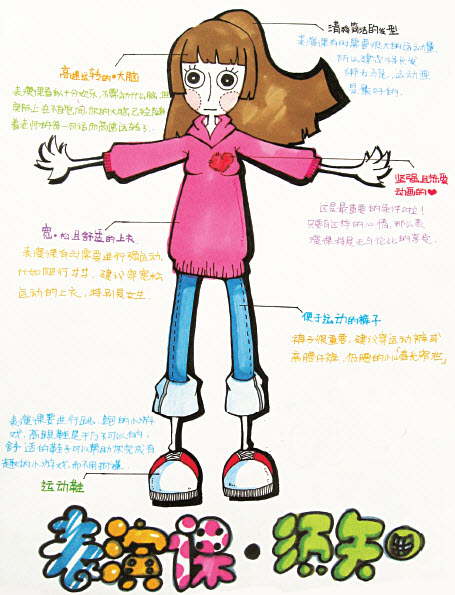 清爽简洁的发型
表演课有时需要很大的运动量,
所以建议将长发
绑马尾,运动型
是最好的.
高速运转的·大脑
表演课看似十分欢乐,不需动什么脑,但
实际上,在不知不觉间,你的大脑已经随
着老师的每一句话而高速运转了.
坚强且热爱
动画的❤
这是最重要的条件啦!
只要有这样的心情,那么表
演课将是无与伦比的享受.
宽·松且舒适的上衣.
表演课有时需要进行强运动,
比如爬行ff.建议穿宽松
运动的上衣,特别是女生.
便于运动的裤子
裤子很重要.建议穿运动裤或
高腰仔裤,低腰的小心"春光乍泄"
表演课要进行跳、跑的小游
戏,高跟鞋是千万不可以的,
舒适的鞋子可以帮助你完成有
趣的小游戏而不担忧.
运动鞋
表演课·须知